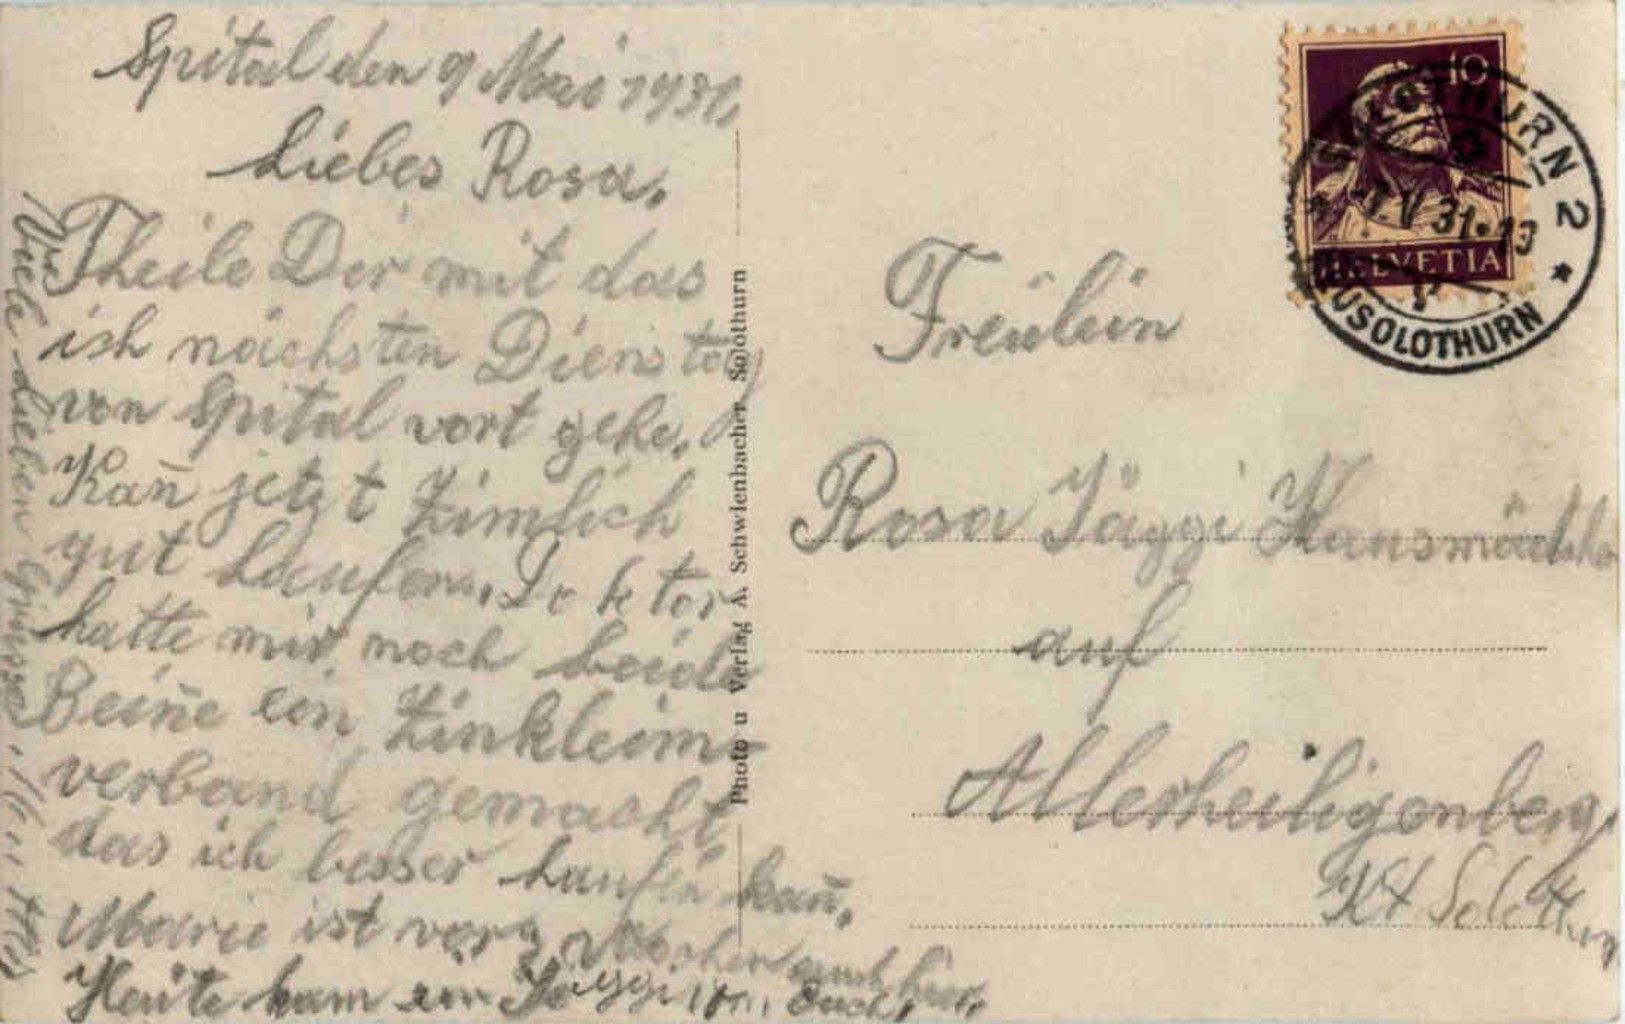 Spital den 9 Mai 1931,
Liebes Rosa.
Theile Dir mit das
ich nächsten Dienstag
von Spital vort gehe.
Kañ jetzt Zimlich
gut Laufen. Doktor
hatte mir noch beide
Beiñe ein Zinkleim-
verband gemacht
das ich besser Laufen kañ.
Marie ist vor 3 Wochen auch hier.
Heute kam ein Jäggi von
Viele Lieben Grüsse.
Photo u Verlag A. Schwienbacher Solothurn
10
HELVETIA
SOLOTHURN 2
V 31. 19
NEUSOLOTHURN
Fräulein
Rosa Jäggi Hausmädchen
auf
Allerheiligenberg
Kt Solothurn